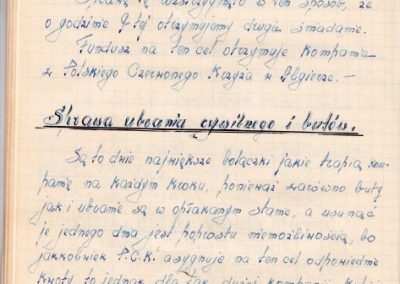 się rozstrzygnięto w ten sposób, że
o godzinie 9-tej otrzymujemy drugie śniadanie.
Fundusz na ten cel otrzymuje Kompania
z Polskiego Czerwonego Krzyża w Algierze.—
Sprawa ubrania cywilnego i butów.
Są to dwie największe bolączki jakie trapią kom-
panię na każdym kroku, ponieważ zarówno buty
jak i ubranie są w opłakanym stanie, a usunąć
je jednego dnia jest poprostu niemożliwością, bo
jakkolwiek P.C.K. asygnuje na ten cel odpowiednie
kwoty to jednak dla tak dużej kompanii